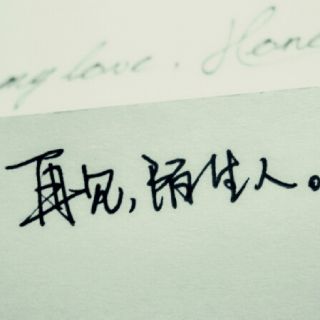 ng love. Hone
再见,陌生人。